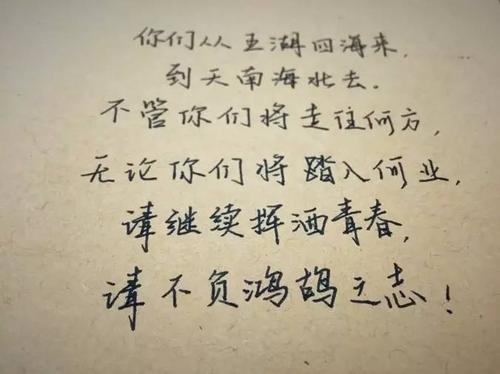 你们从五湖四海来,
到天南海北去.
不管你们将走往何方,
无论你们将踏入何业,
请继续挥洒青春,
请不负鸿鹄之志!